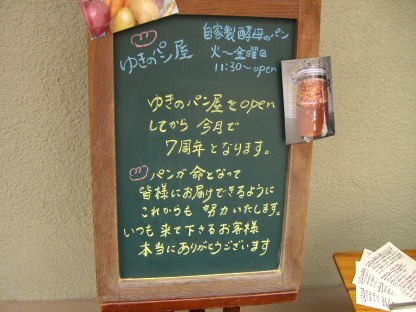 ゆきのパン屋
自家製酵母のパン
火〜金曜日
11:30〜open
ゆきのパン屋をopen
してから 今月で
7周年となります。
パンが命となって
皆様にお届けできるように
これからも 努力いたします。
いつも 来て下さるお客様
本当にありがとうございます